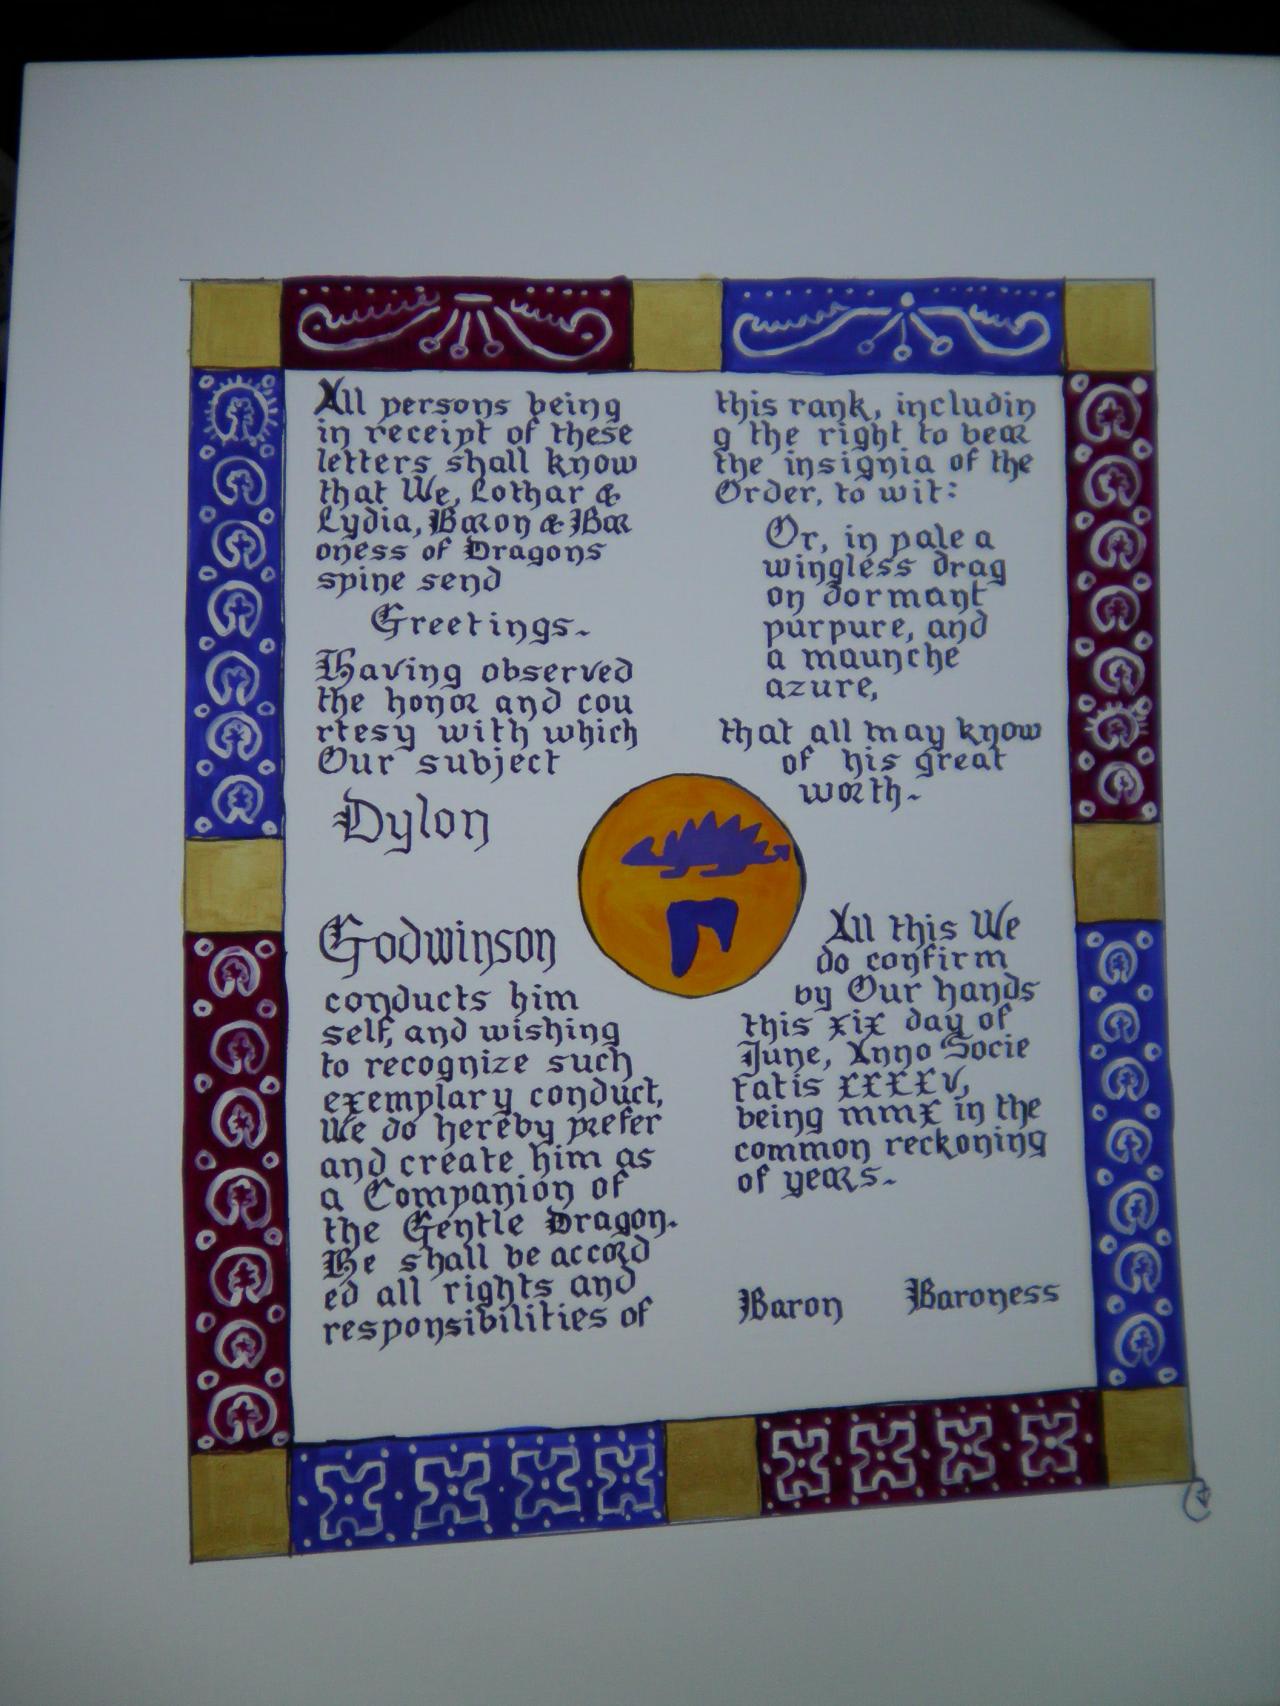 All persons being
in receipt of these
letters shall know
that We, Lothar &
Lydia, Baron & Bar
oness of Dragons
spine send
Greetings~
Having observed
the honor and cou
rtesy with which
Our subject
Dylon
Godwinson
conducts him
self, and wishing
to recognize such
exemplary conduct,
We do hereby prefer
and create him as
a Companion of
the Gentle Dragon.
He shall be accord
ed all rights and
responsibilities of
this rank, includin
g the right to bear
the insignia of the
Order, to wit:
Or, in pale a
wingless drag
on dormant
purpure, and
a maunche
azure,
that all may know
of his great
worth~
All this We
do confirm
by Our hands
this xix day of
June, Anno Socie
tatis XXXXV,
being mmx in the
common reckoning
of years~
Baron Baroness